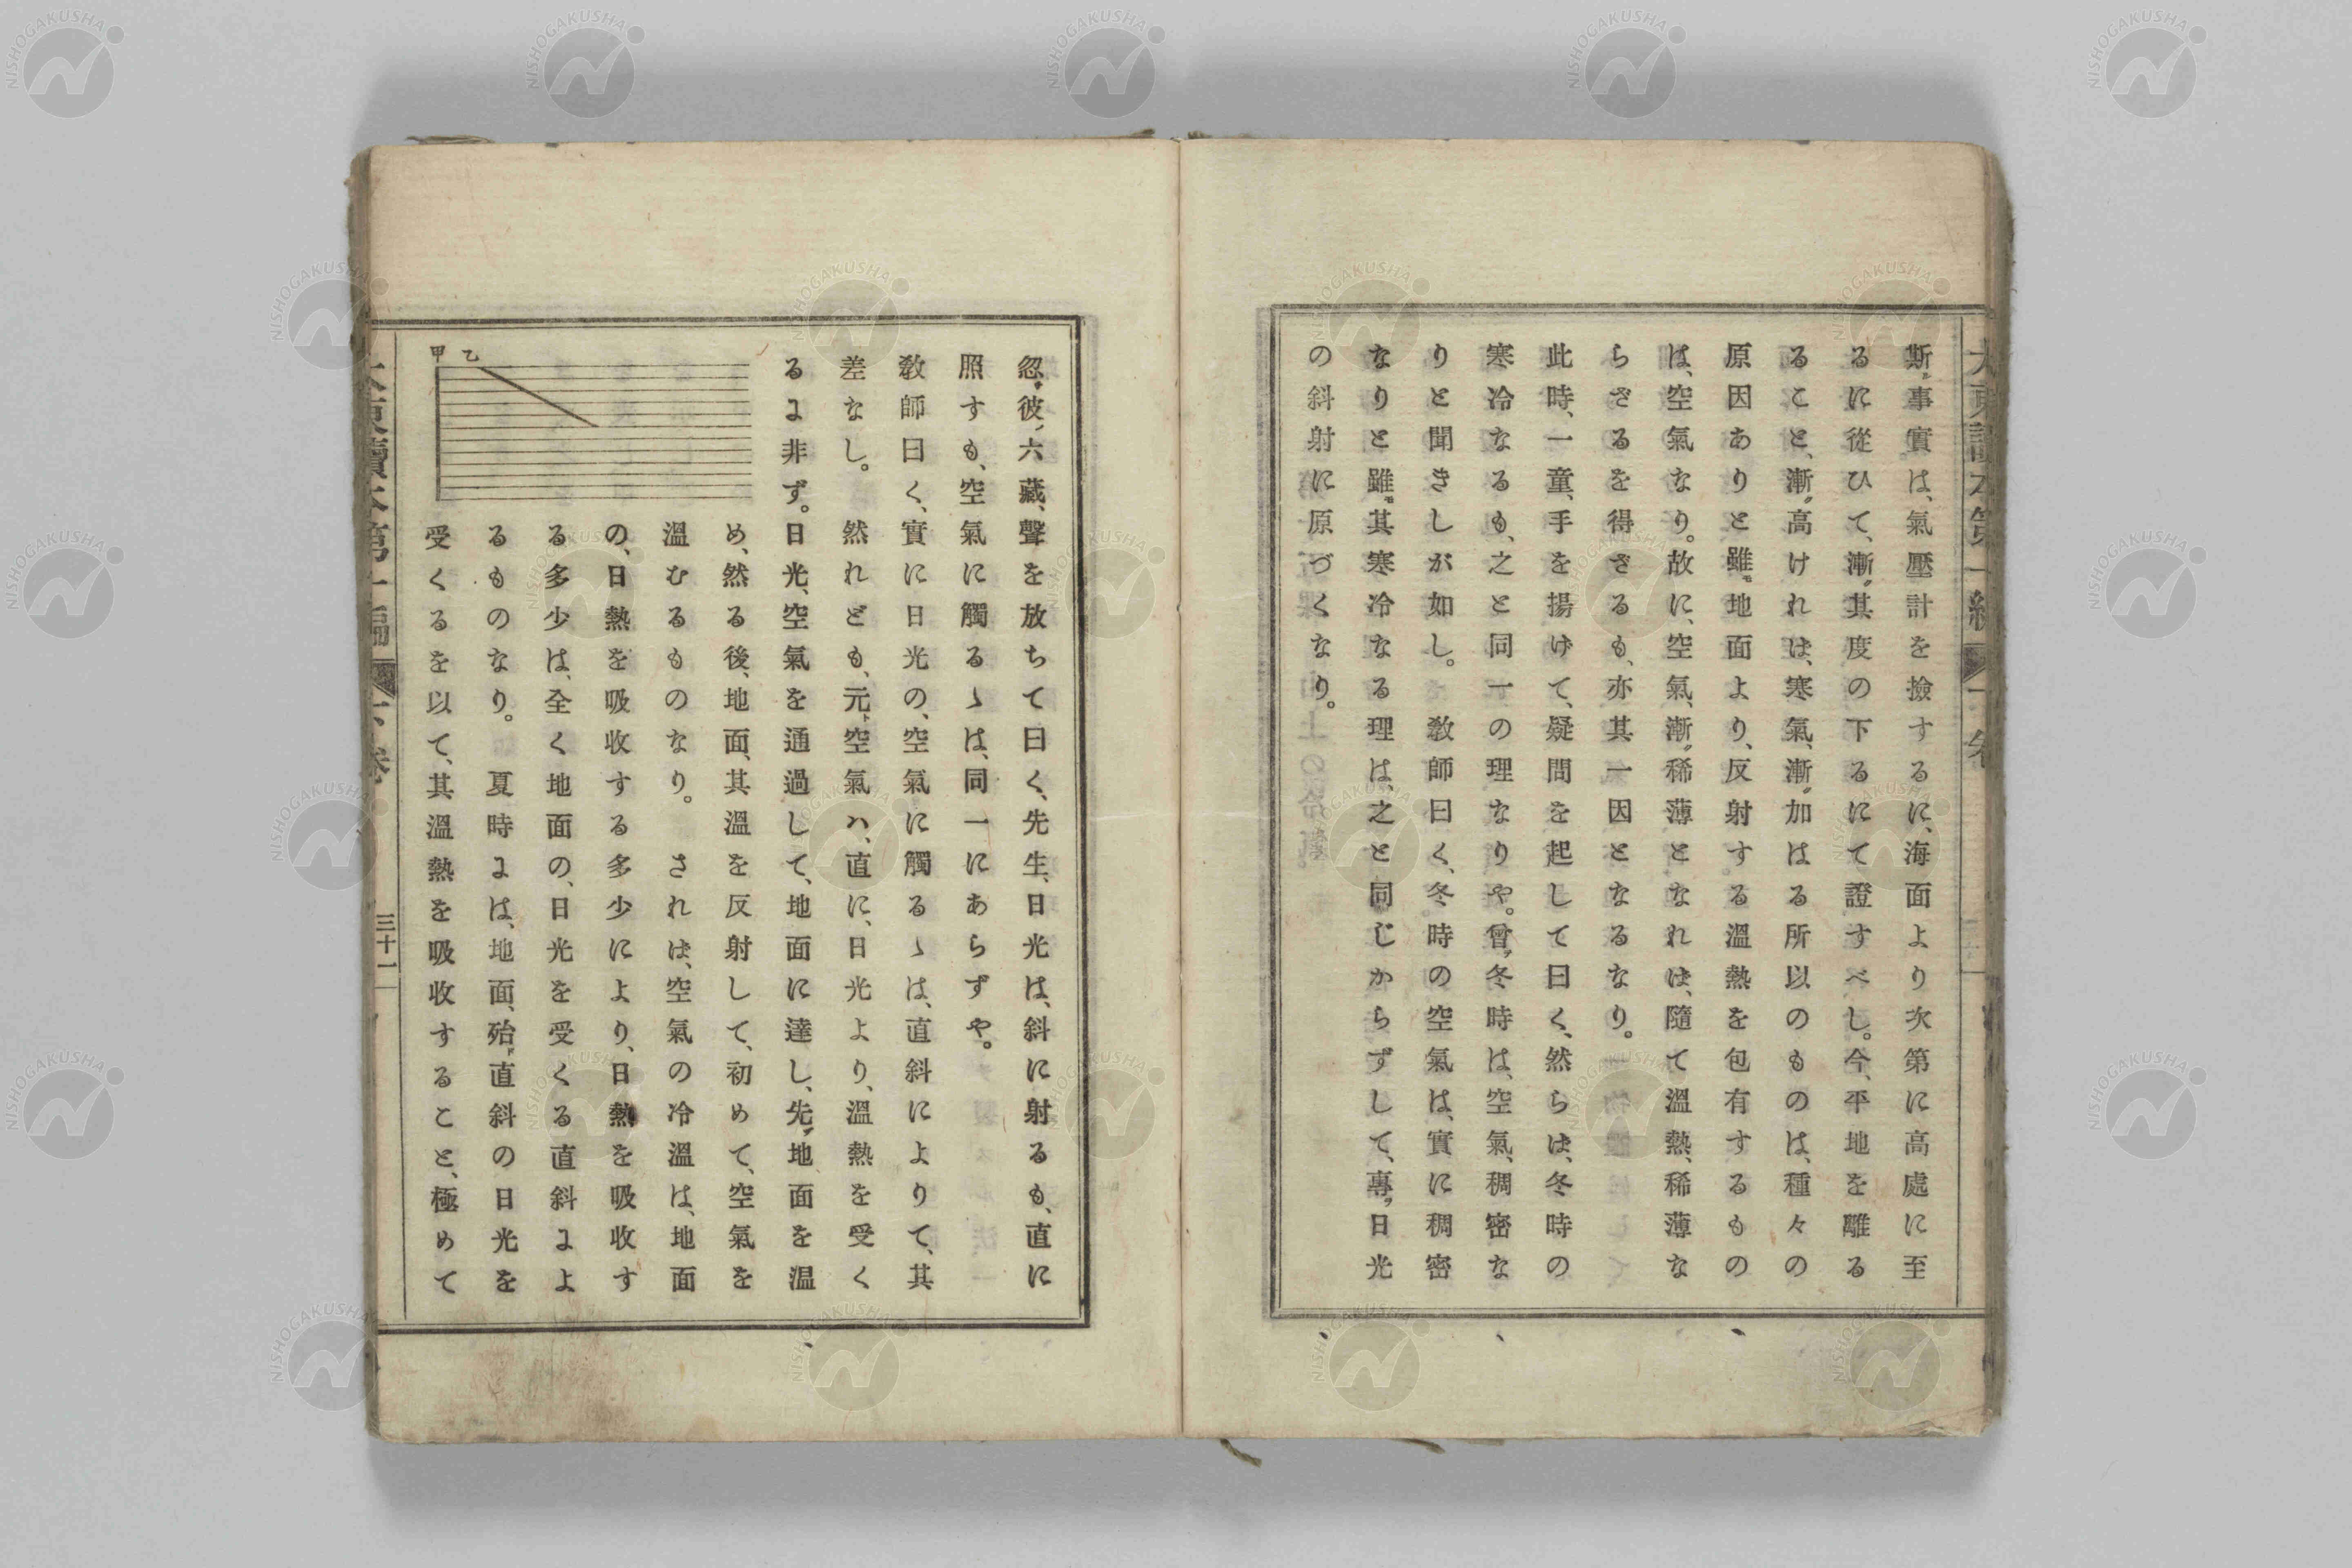 斯〻事實は、氣壓計を撿するに、海面より次第に高處に至
るに從ひて、漸〻其度の下るにて證すべし。今、平地を離る
ること、漸〻高ければ、寒氣、漸〻加はる所以のものは、種々の
原因ありと雖〻地面より、反射する溫熱を包有するもの
は、空氣なり。故に、空氣、漸〻稀薄となれは、隨て溫熱、稀薄な
らざるを得ざるも、亦其一因となるなり。
此時、一童、手を揚けて、疑問を起して曰く、然らは、冬時の
寒冷なるも、之と同一の理なりや。曾〻冬時は、空氣、稠密な
りと聞きしが如し。敎師曰く、冬時の空氣は、實に稠密
なりと雖〻其寒冷なる理は、之と同じからずして、專〻日光
の斜射に原づくなり。
忽〻彼〻六藏、聲を放ちて曰く、先生、日光は、斜に射るも、直に
照すも、空氣に觸るゝは、同一にあらずや。
敎師曰く、實に日光の、空氣に觸るゝは、直斜によりて、其
差なし。然れども、元〻空氣ハ、直に、日光より、溫熱を受く
るよ非ず。日光、空氣を通過して、地面に達し、先〻地面を温
め、然る後、地面、其溫を反射して、初めて、空氣を
溫むるものなり。されは、空氣の冷溫は、地面
の、日熱を吸收する多少により、日熱を吸收す
る多少は、全く地面の、日光を受くる直斜によ
るものなり。夏時よは、地面、殆〻直斜の日光を
受くるを以て、其溫熱を吸收すること、極めて
甲 乙
三十一
NISHOGAKUSHA